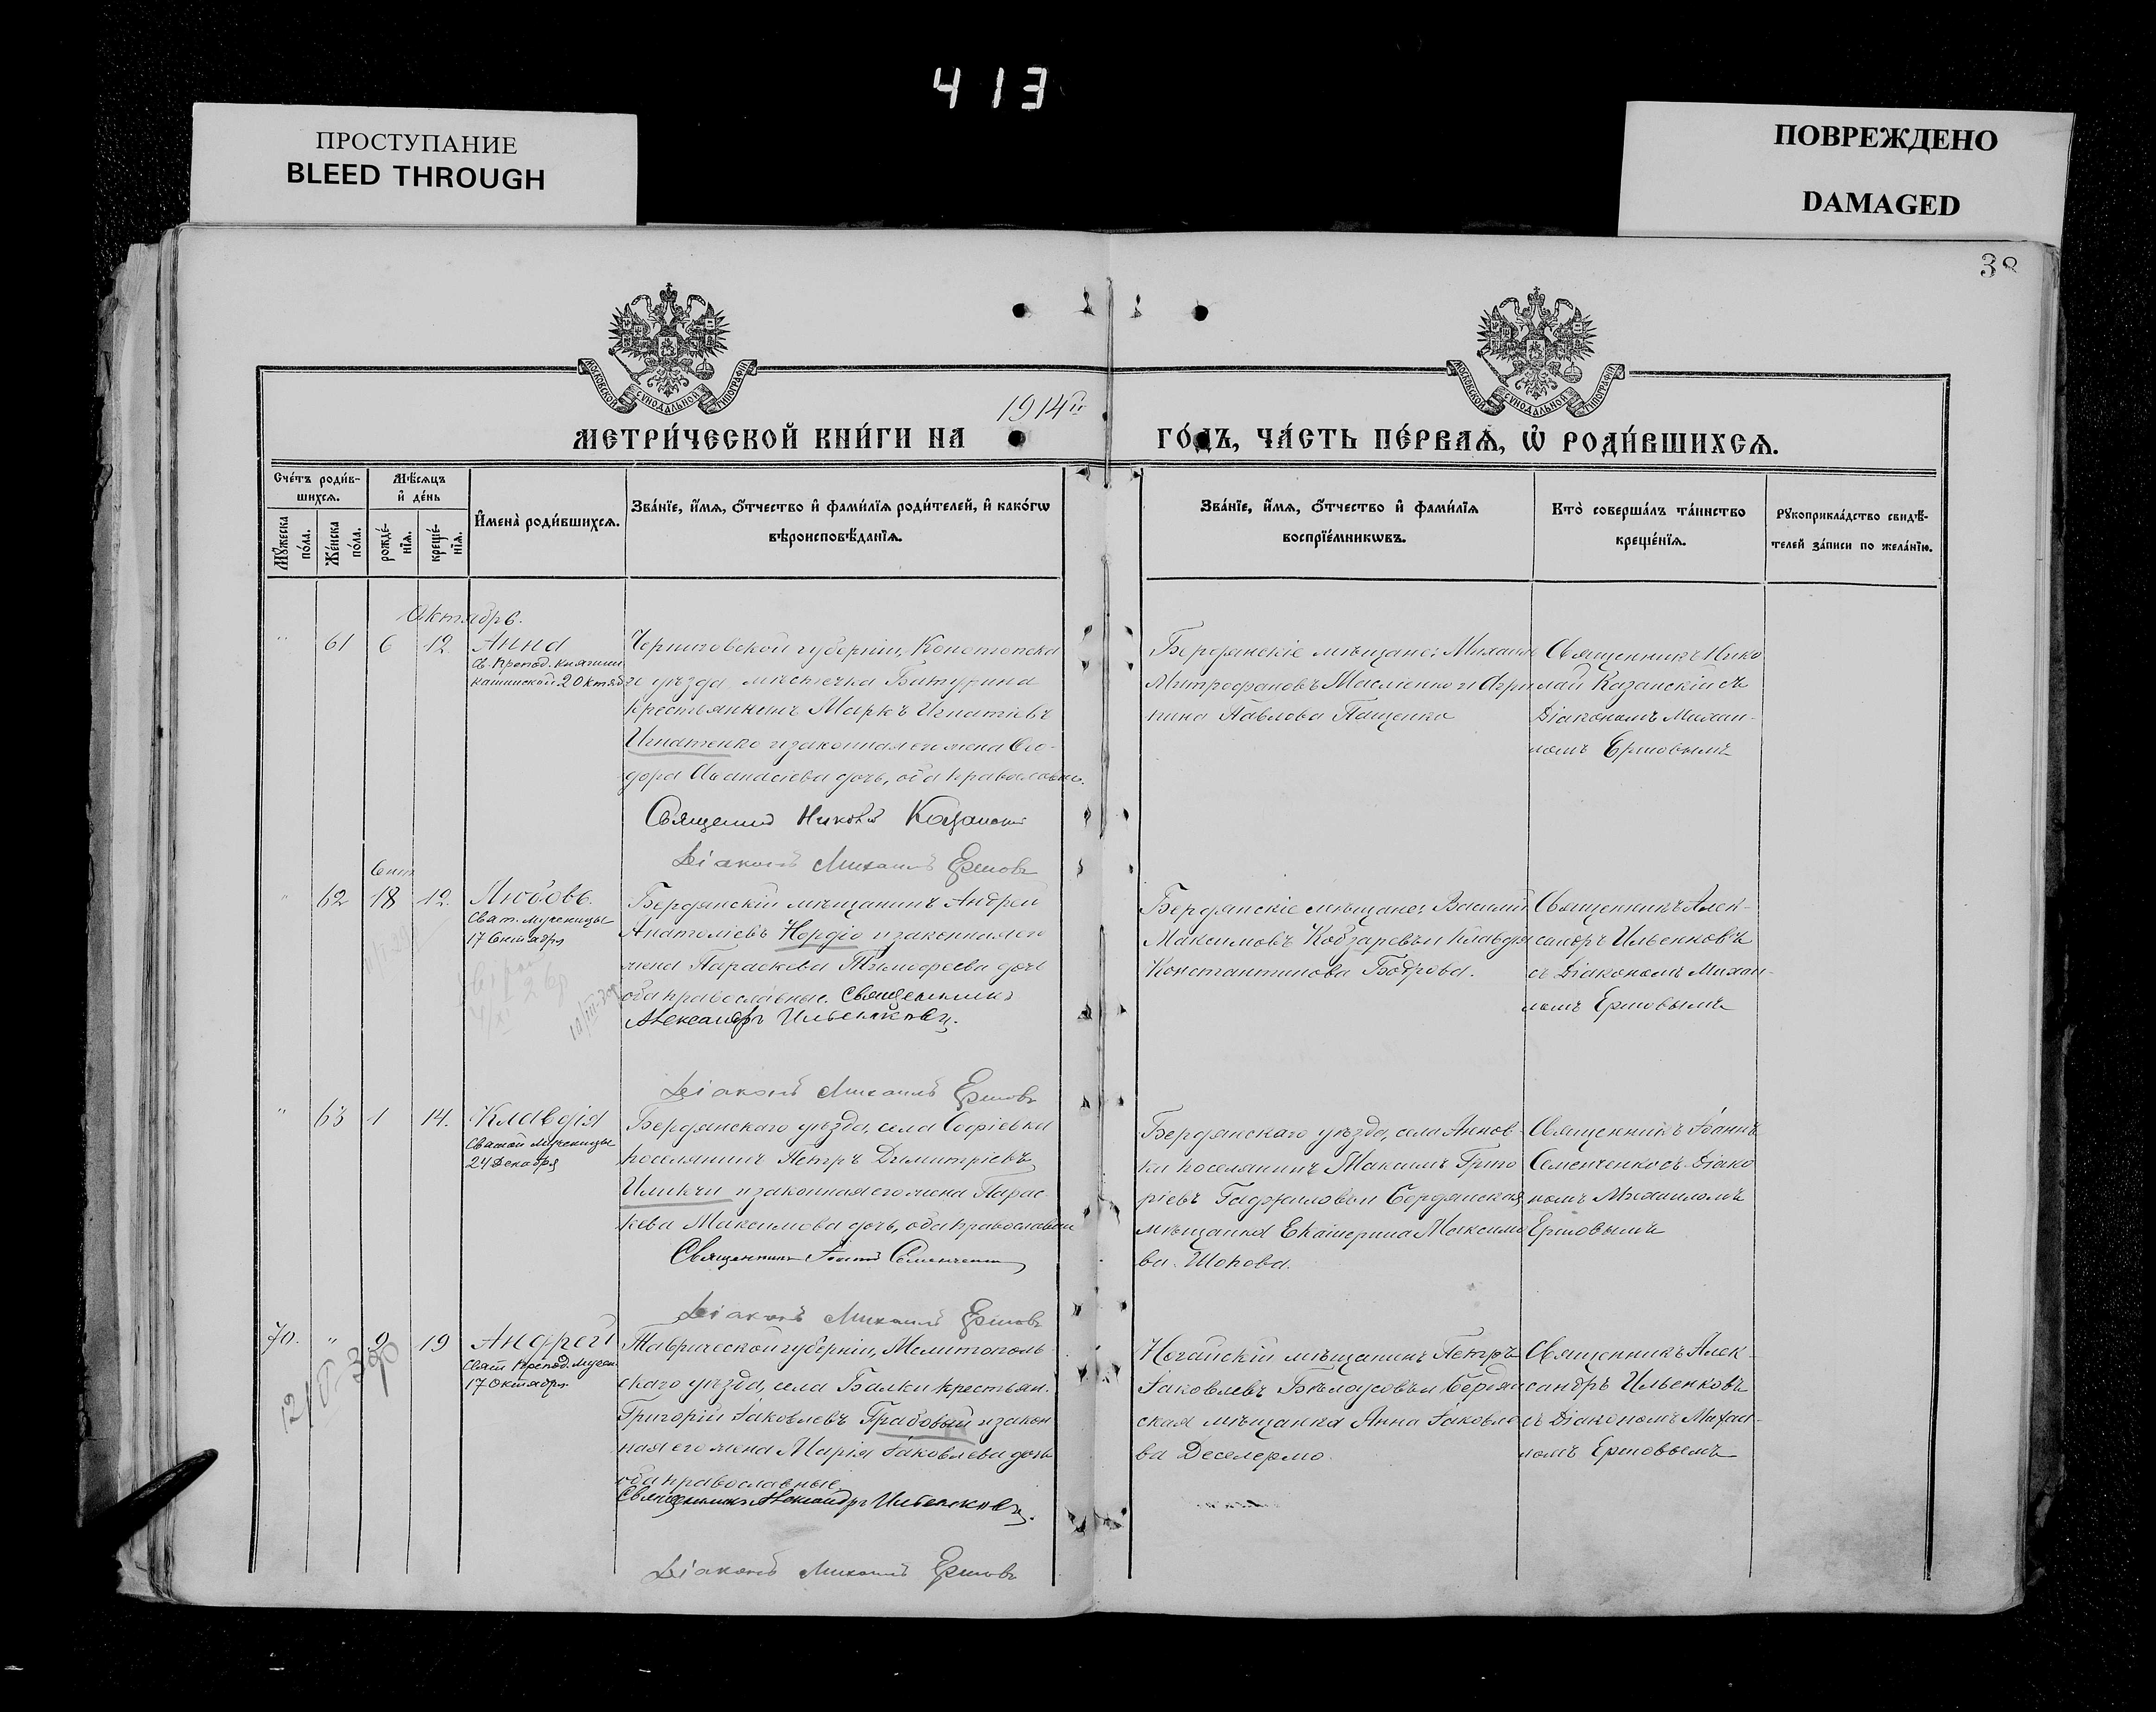 413
ПРОСТУПАНИЕ
BLEED THROUGH
ПОВРЕЖДЕНО
DAMAGED
38
МОСКОВСКОЙ СѴНОДАЛЬНОЙ ТИПОГРАФІИ
МОСКОВСКОЙ СѴНОДАЛЬНОЙ ТИПОГРАФІИ
МЕТРИ́ЧЕСКОЙ КНИ́ГИ НА 1914й ГО́ДЪ, ЧА́СТЬ ПЕ́РВАѦ, Ѡ҆ РОДИ́ВШИХСѦ.
Сче́тъ роди́в-
шихсѧ.
Мѣ́сѧцъ
и҆ де́нь
Мꙋ́жеска
по́ла.
Же́нска
по́ла.
рожде́-
нїѧ.
креще́-
нїѧ.
И҆мена̀ роди́вшихсѧ.
Зва́нїе, и҆́мѧ, ѻ҆́тчество и҆ фами́лїѧ роди́телей, и҆ како́гѡ
вѣроисповѣ́данїѧ.
Зва́нїе, и҆́мѧ, ѻ҆́тчество и҆ фами́лїѧ
воспрїе́мникѡвъ.
Кто̀ соверша́лъ та́инство
креще́нїѧ.
Рꙋкоприкла́дство свидѣ́-
телей за́писи по жела́нїю.
Октябрь.
" 61 6 12. Анна
Св. Препод. княгини
кашинской 2 Октяб.
Черниговской губерніи, Конотопска
го уѣзда, мѣстечка Батурина
крестьянинъ Маркъ Игнатіевъ
Игнатенко и законная его жена Ѳео-
дора Аѳанасіева дочь, оба православные.
Священник Николай Казанский
Діаконъ Михаилъ Ершовъ
Бердянскіе мѣщане: Михаилъ
Митрофановъ Масленко и Агрип
пина Павлова Пащенко
Священникъ Нико
лай Казанскій съ
Діакономъ Михаи-
ломъ Ершовымъ
Сент.
" 62 18 12. Любовь.
Свят. мученицы
17 Сентября
Бердянскій мѣщанинъ Андрей
Анатоліевъ Нордіо и законная его
жена Параскева Тимофеева дочь
оба православные. Священникъ
Александръ Ильенковъ.
Діаконъ Михаилъ Ершовъ
Бердянскіе мѣщане: Василій
Максимовъ Кобзаревъ и Клавдія
Константинова Боброва.
Священникъ Алек-
сандръ Ильенковъ
съ Діакономъ Михаи-
ломъ Ершовымъ
" 63 1 14. Клавдія
Святой мученицы
24 Декабря
Бердянскаго уѣзда, села Софіевки
поселянинъ Петръ Димитріевъ
Иликчи и законная его жена Парас
кева Максимова дочь, оба православные
Священникъ Іоаннъ Семенченко
Діаконъ Михаилъ Ершовъ
Бердянскаго уѣзда, села Аннов
ки поселянинъ Максимъ Григо
ріевъ Гаджиловъ и Бердянская
мѣщанка Екатерина Максимо
ва Шопова.
Священникъ Іоаннъ
Семенченко съ Діако
номъ Михаиломъ
Ершовымъ
70. " 9 19 Андрей
Свят. Препод. мучен.
17 Октября
Таврической губерніи, Мелитополь-
скаго уѣзда, села Балки крестьян.
Григорій Іаковлевъ Грабовый и закон
ная его жена Марія Іаковлева дочь
оба православные
Священникъ Александръ Ильенковъ.
Діаконъ Михаилъ Ершовъ
Ногайскій мѣщанинъ Петръ
Іаковлевъ Бѣлоусовъ и Бердян
ская мѣщанка Анна Іаковле
ва Деселермо.
Священникъ Алек-
сандръ Ильенковъ
съ Діакономъ Михаи-
ломъ Ершовымъ